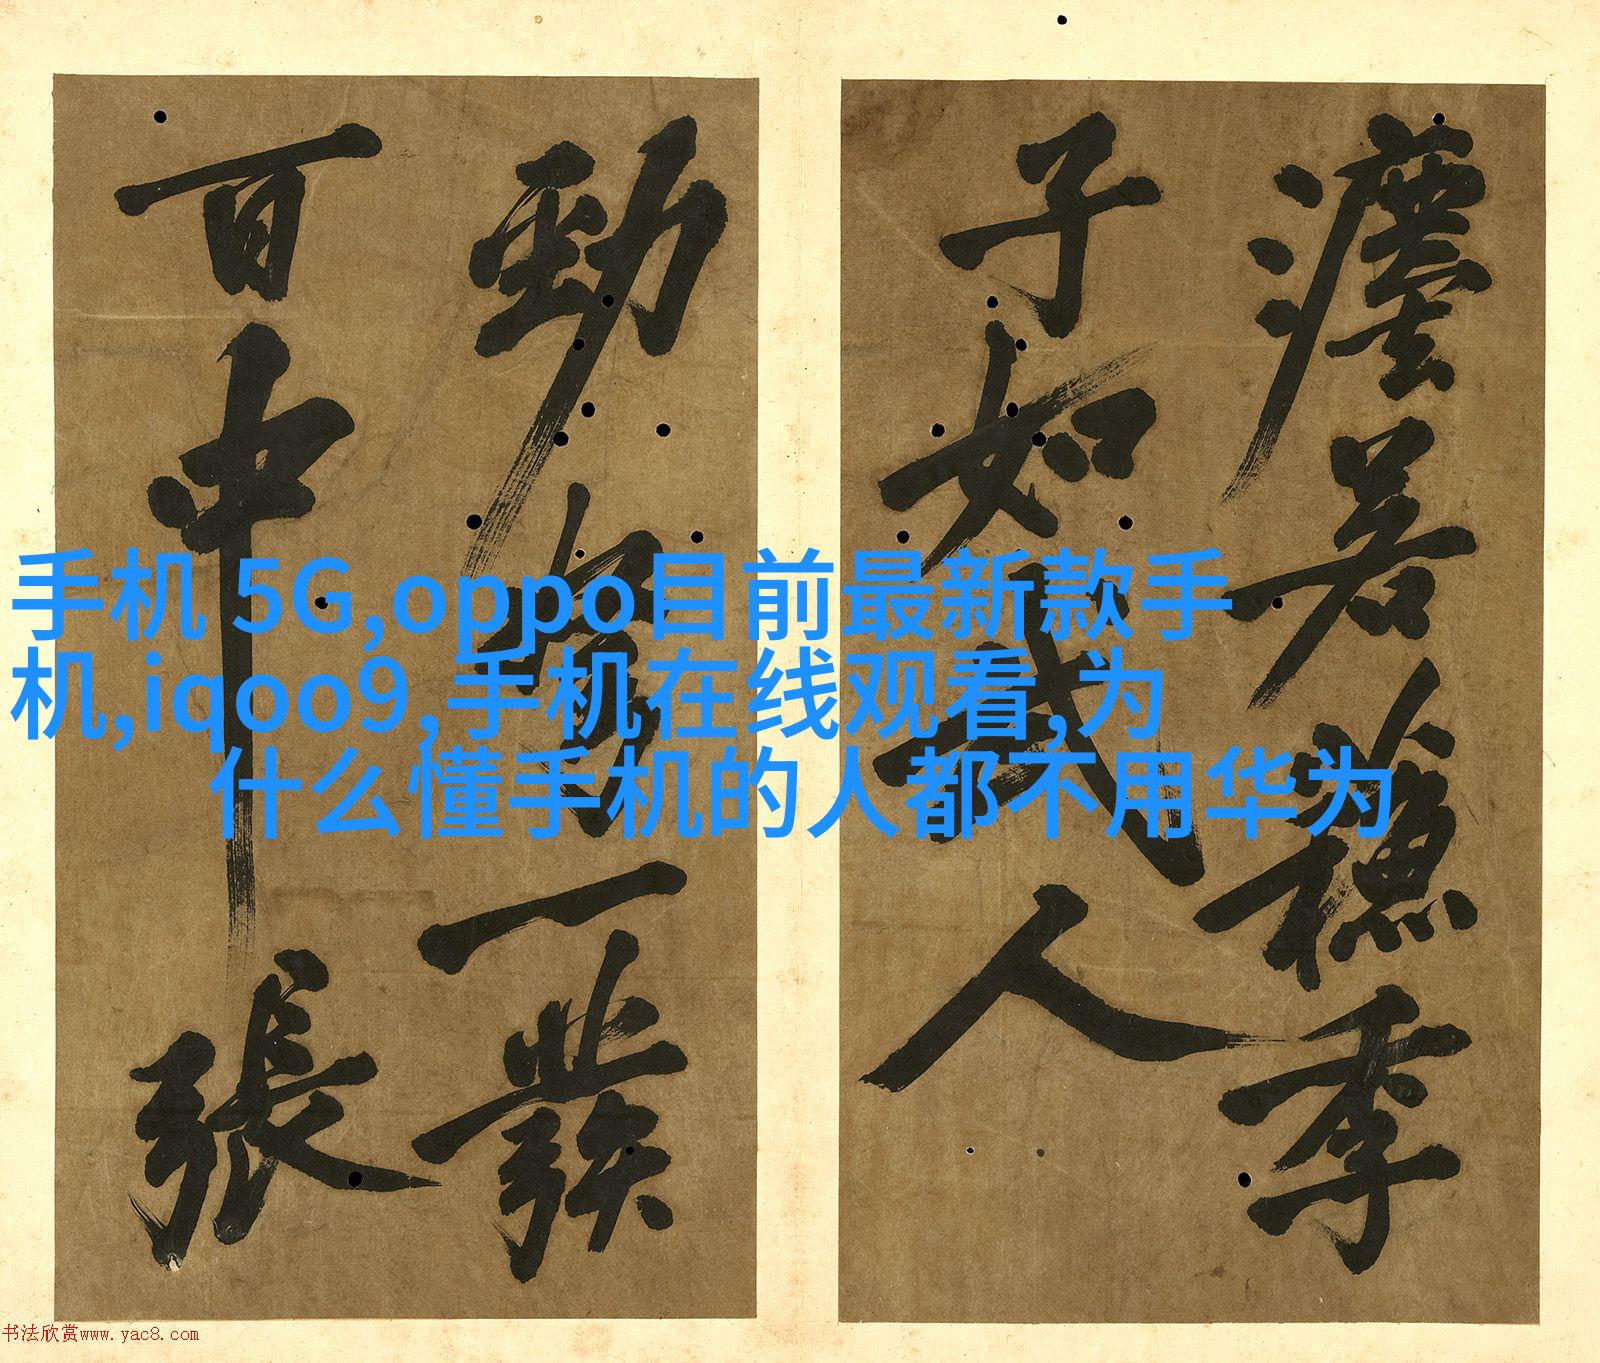 手机 5G,oppo目前最新款手
机,iqoo9,手机在线观看,为
什么懂手机的人都不用华为
瀍若蘓季
子如人
勁弩一發
百中張
书法欣赏www.yac8.com